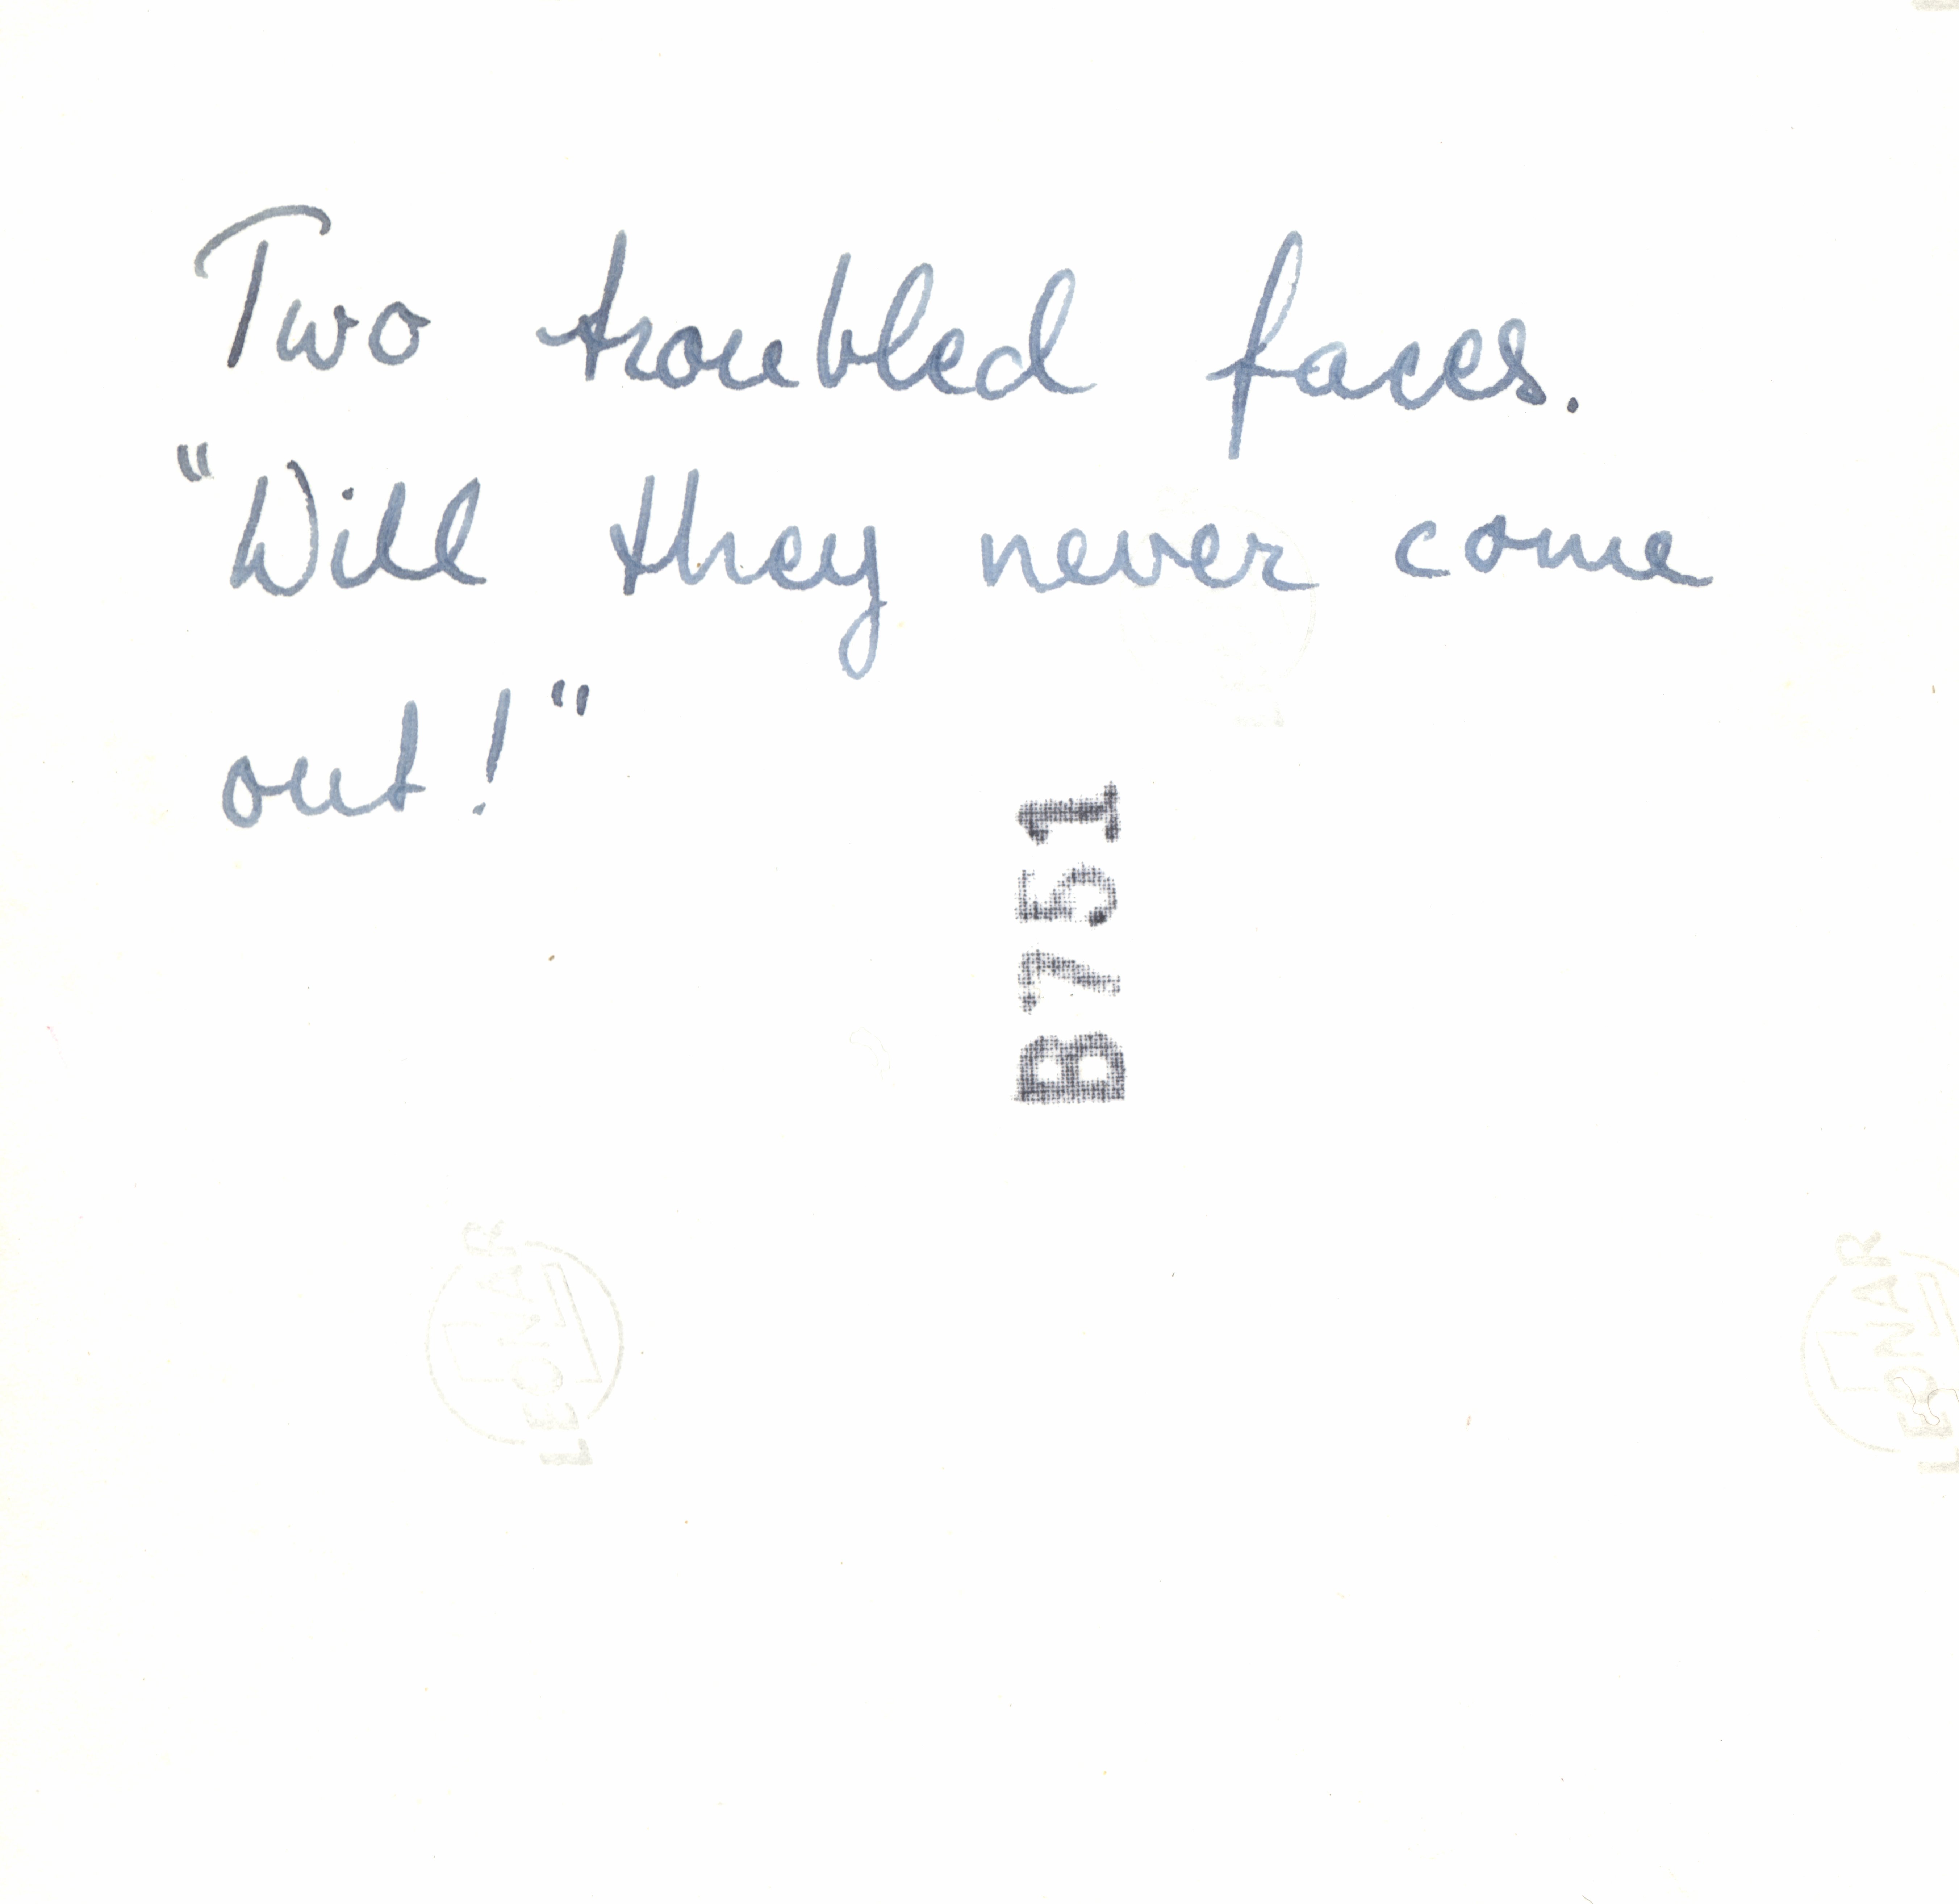 Two troubled faces.
"Will they never come
out!"
B751
LEONAR
LEONAR